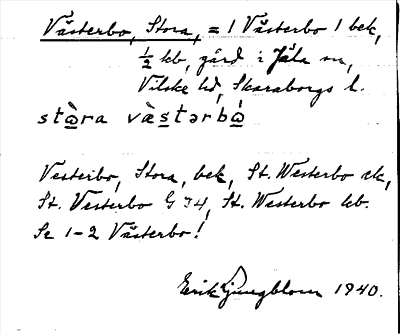 Västerbo, Stora, = 1 Västerbo 1 bek,
½ kb, gård i Jäla sn,
Vilske hd, Skaraborgs l.
stὰ̲ra væ̀s̲tərbὰ̲
Vesterbo, Stora, bek, St. Westerbo ek,
St. Vesterbo G 74, St. Westerbo kb.
Se 1-2 Västerbo!
Erik Ljungblom 1940.